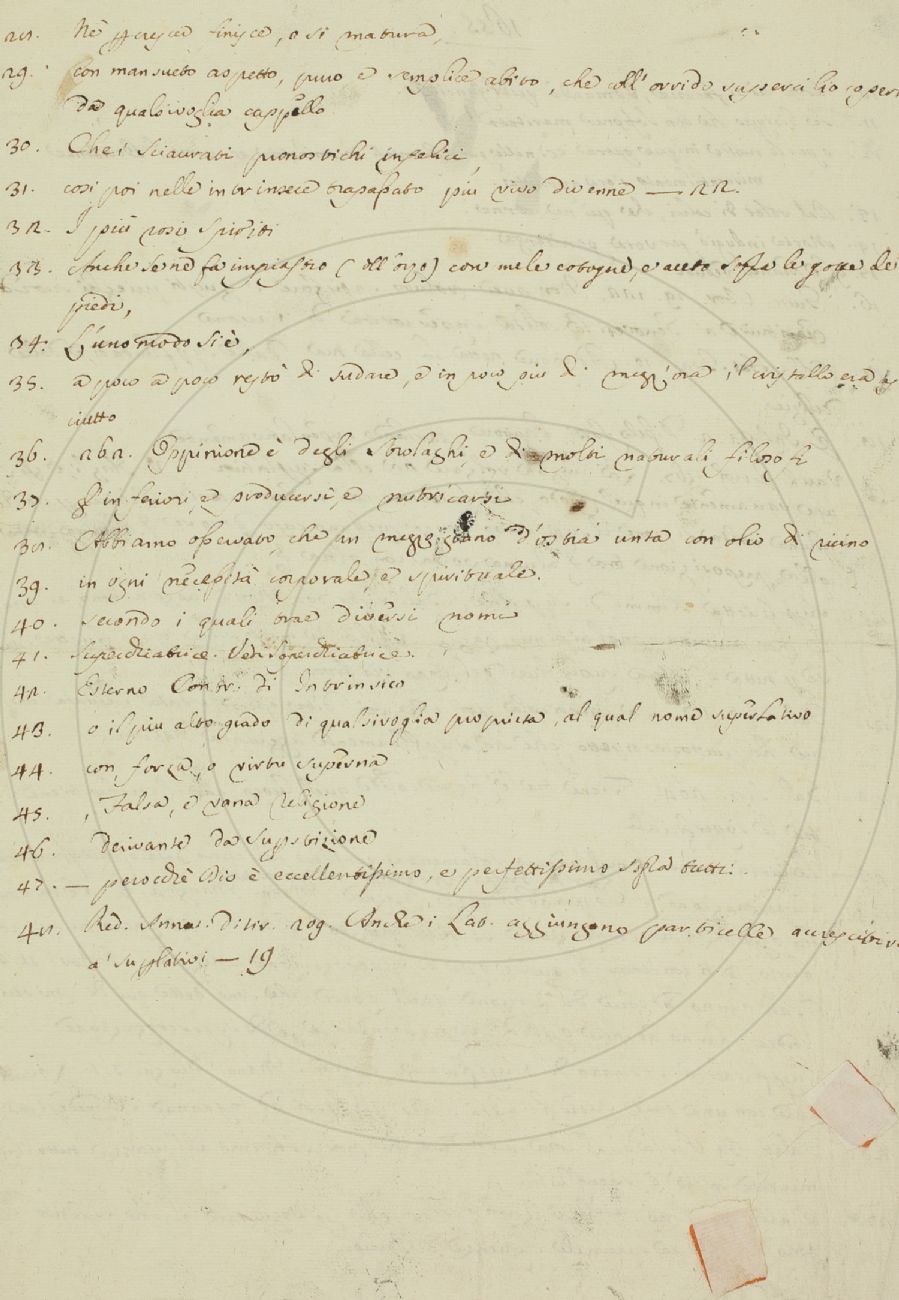 28. Nè p cresce finisce, o si matura,
29. Con mansueto aspetto, puro e semplice abito, che coll'orrido supercilio coper
da qualsivoglia cappello
30. Che i sciaurati pronostichi infelici
31. cosi poi nelle intrinsece trapassato piu vivo divenne — 22.
32. I più rosi spiriti
33. Anche se ne fa impiastro (dell'orzo) con mele cotogne, e aceto sopra le gotte de
piedi,
34. L'uno modo si è,
35. a poco a poco restò di sudare, e in poco piu di mezz'ora il cristallo era as
ciutto
36. 262. Oppinione è degli Strolaghi, e di molti naturali filosofi
37. Gl'inferiori, e producersi, e nutricarsi
38. Abbiamo osservato, che un mezzo grano d'ostia unta con olio di ricino
39. in ogni necessità corporale, e spirituale.
40. secondo i quali trae diversi nomi
41. Superchiatrice. Vedi Soperchiatrice.
42. Esterno Contr. di Intrinsico
43. o il piu alto grado di qualsivoglia proprieta, al qual nome superlativo
44. con forza, o virtu superna
45. , Falsa, e vana religione
46. derivante da superstizione
47. — perocchè Dio è eccellentissimo, e perfettissimo sopra tutti:
48. Red. Annot. Ditir. 209. Anche i Lat. aggiungono particelle accrescitive
a' superlativi — 19